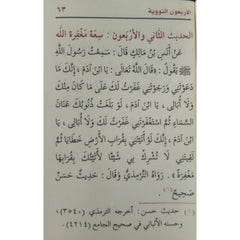 الأربعون النووية
٦٣
الحديث الثاني والأربعون : سعة مغفرة الله
عَنْ أَنَسِ بْنِ مَالِكٍ قَالَ : سَمِعْتُ رَسُولَ اللَّهِ
ﷺ يَقُولُ : قَالَ اللَّهُ تَعَالَى : يَا ابْنَ آدَمَ ، إِنَّكَ مَا
دَعَوْتَنِي وَرَجَوْتَنِي غَفَرْتُ لَكَ عَلَى مَا كَانَ مِنْكَ
وَلَا أُبَالِي ، يَا ابْنَ آدَمَ ، لَوْ بَلَغَتْ ذُنُوبُكَ عَنَانَ
السَّمَاءِ ثُمَّ اسْتَغْفَرْتَنِي غَفَرْتُ لَكَ وَلَا أُبَالِي ، يَا
ابْنَ آدَمَ ، إِنَّكَ لَوْ أَتَيْتَنِي بِقُرَابِ الْأَرْضِ خَطَايَا ثُمَّ
لَقِيتَنِي لَا تُشْرِكُ بِي شَيْئًا لَأَتَيْتُكَ بِقُرَابِهَا
مَغْفِرَةً . رَوَاهُ التِّرْمِذِيُّ وَقَالَ : حَدِيثٌ حَسَنٌ
صَحِيحٌ (١)
(١) حديث حسن : أخرجه الترمذي (٣٥٤٠) ،
وحسنه الألباني في صحيح الجامع (٤٢١٤)